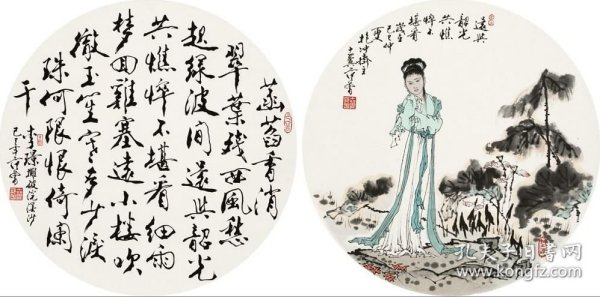 菡萏香消
翠葉殘西風愁
起綠波間還與韶光
共憔悴不堪看細雨
夢回雞塞遠小樓吹
徹玉笙寒多少淚
珠何限恨倚闌
干
李璟攤破浣溪沙
范曾
還與
韶光
共憔
悴不
堪看
夏
抱沖齋主
十翼范曾
孔夫子旧书网
www.kongfz.com